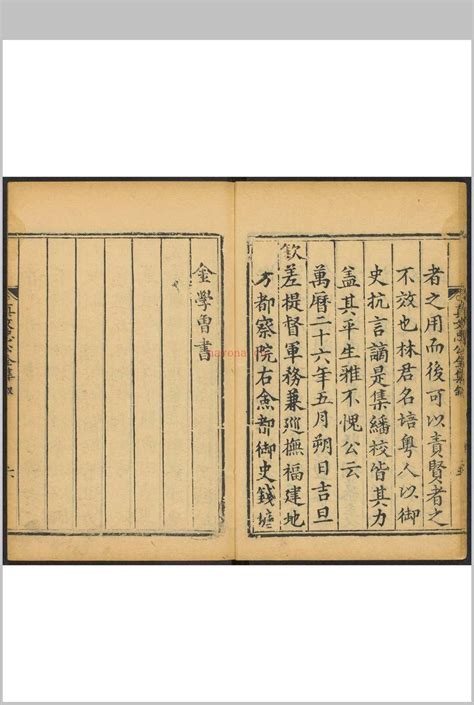 者之用而後可以責賢者之
不效也林君名培粵人以御
史抗言謫是集繙校皆其力
盖其平生雅不愧公云
萬曆二十六年五月朔日吉旦
欽差提督軍務兼巡撫福建地
方都察院右僉都御史錢塘
金學曾書